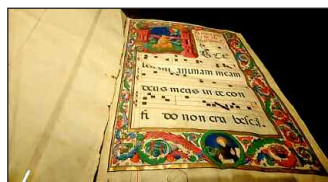 leuaui animam meam
deus meus in te con
fi do non eru besca